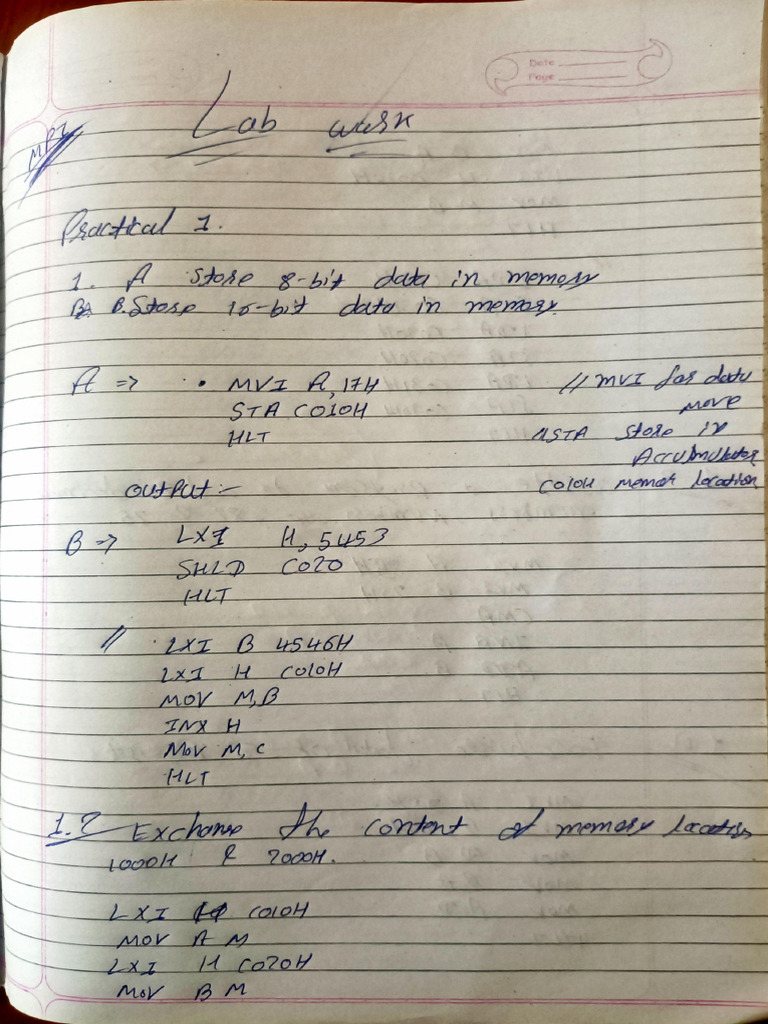 Date
Page
MPI
Lab work
Practical 1.
1. A store 8-bit data in memory
B. Store 16-bit data in memory.
A => • MVI A, 17H // MVI for data
move
STA C010H
HLT //STA store in
Accumulator
OUTPUT :- C010H memor location
B => LXI H, 5453
SHLD C020
HLT
// LXI B 4546H
LXI H C010H
MOV M,B
INX H
MOV M, C
HLT
1.2 Exchange the content of memory location
1000H & 2000H.
LXI H C010H
MOV A M
LXI H C020H
MOV B M